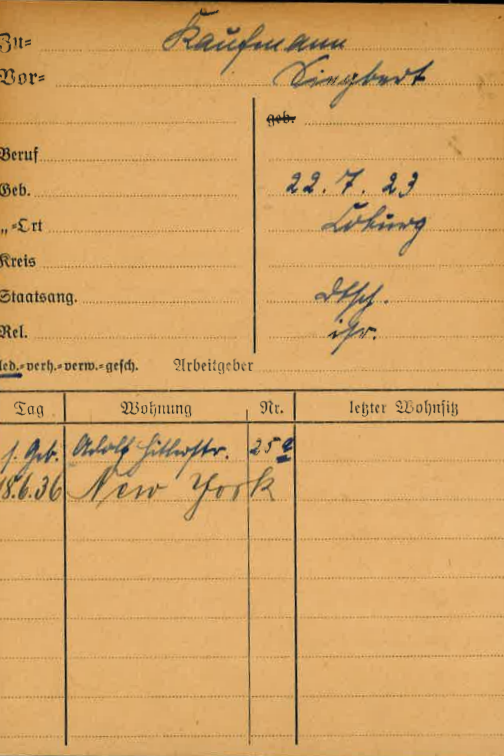 Zu= Kaufmann
Vor= Siegbert
geb.
Beruf
Geb. 22. 7. 23
„=Ort Coburg
Kreis
Staatsang. Dtsch.
Rel. isr.
led.=verh.=verw.=gesch. Arbeitgeber
Tag Wohnung Nr. letzter Wohnsitz
s. Geb. Adolf Hitlerstr. 25a
18.6.36 New York